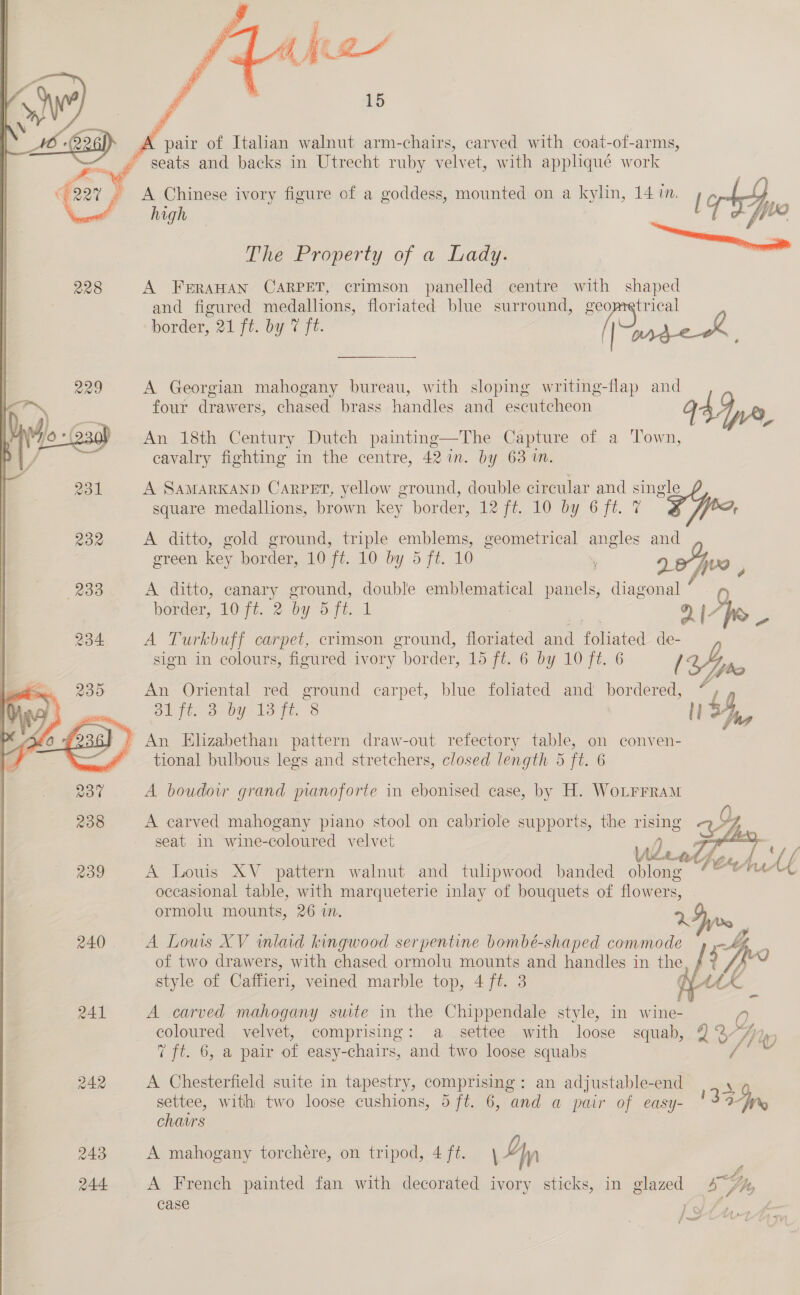 15
226 A pair of Italian walnut arm-chairs, carved with coat-of-arms,
seats and backs in Utrecht ruby velvet, with appliqué work
227 A Chinese ivory figure of a goddess, mounted on a kylin, 14 in.
high
The Property of a Lady.
228 A FERAHAN CARPET, crimson panelled centre with shaped
and figured medallions, floriated blue surround, geometrical
border, 21 ft. by 7 ft.
229 A Georgian mahogany bureau, with sloping writing-flap and
four drawers, chased brass handles and escutcheon
230 An 18th Century Dutch painting—The Capture of a Town,
cavalry fighting in the centre, 42 in. by 63 in.
231 A SAMARKAND CARPET, yellow ground, double circular and single
square medallions, brown key border, 12 ft. 10 by 6 ft. 7
232 A ditto, gold ground, triple emblems, geometrical angles and
green key border, 10 ft. 10 by 5 ft. 10
233 A ditto, canary ground, double emblematical panels, diagonal
border, 10 ft. 2 by 5 ft. 1
234 A Turkbuff carpet, crimson ground, floriated and foliated de-
sign in colours, figured ivory border, 15 ft. 6 by 10 ft. 6
235 An Oriental red ground carpet, blue foliated and bordered,
31 ft. 3 by 13 ft. 8
236 An Elizabethan pattern draw-out refectory table, on conven-
tional bulbous legs and stretchers, closed length 5 ft. 6
237 A boudoir grand pianoforte in ebonised case, by H. WOLFFRAM
238 A carved mahogany piano stool on cabriole supports, the rising
seat in wine-coloured velvet
239 A Louis XV pattern walnut and tulipwood banded oblong
occasional table, with marqueterie inlay of bouquets of flowers,
ormolu mounts, 26 in.
240 A Louis XV inlaid kingwood serpentine bombé-shaped commode
of two drawers, with chased ormolu mounts and handles in the
style of Caffieri, veined marble top, 4 ft. 3
241 A carved mahogany suite in the Chippendale style, in wine-
coloured velvet, comprising: a settee with loose squab,
7 ft. 6, a pair of easy-chairs, and two loose squabs
242 A Chesterfield suite in tapestry, comprising: an adjustable-end
settee, with two loose cushions, 5 ft. 6, and a pair of easy-
chairs
243 A mahogany torchère, on tripod, 4 ft.
244 A French painted fan with decorated ivory sticks, in glazed
case